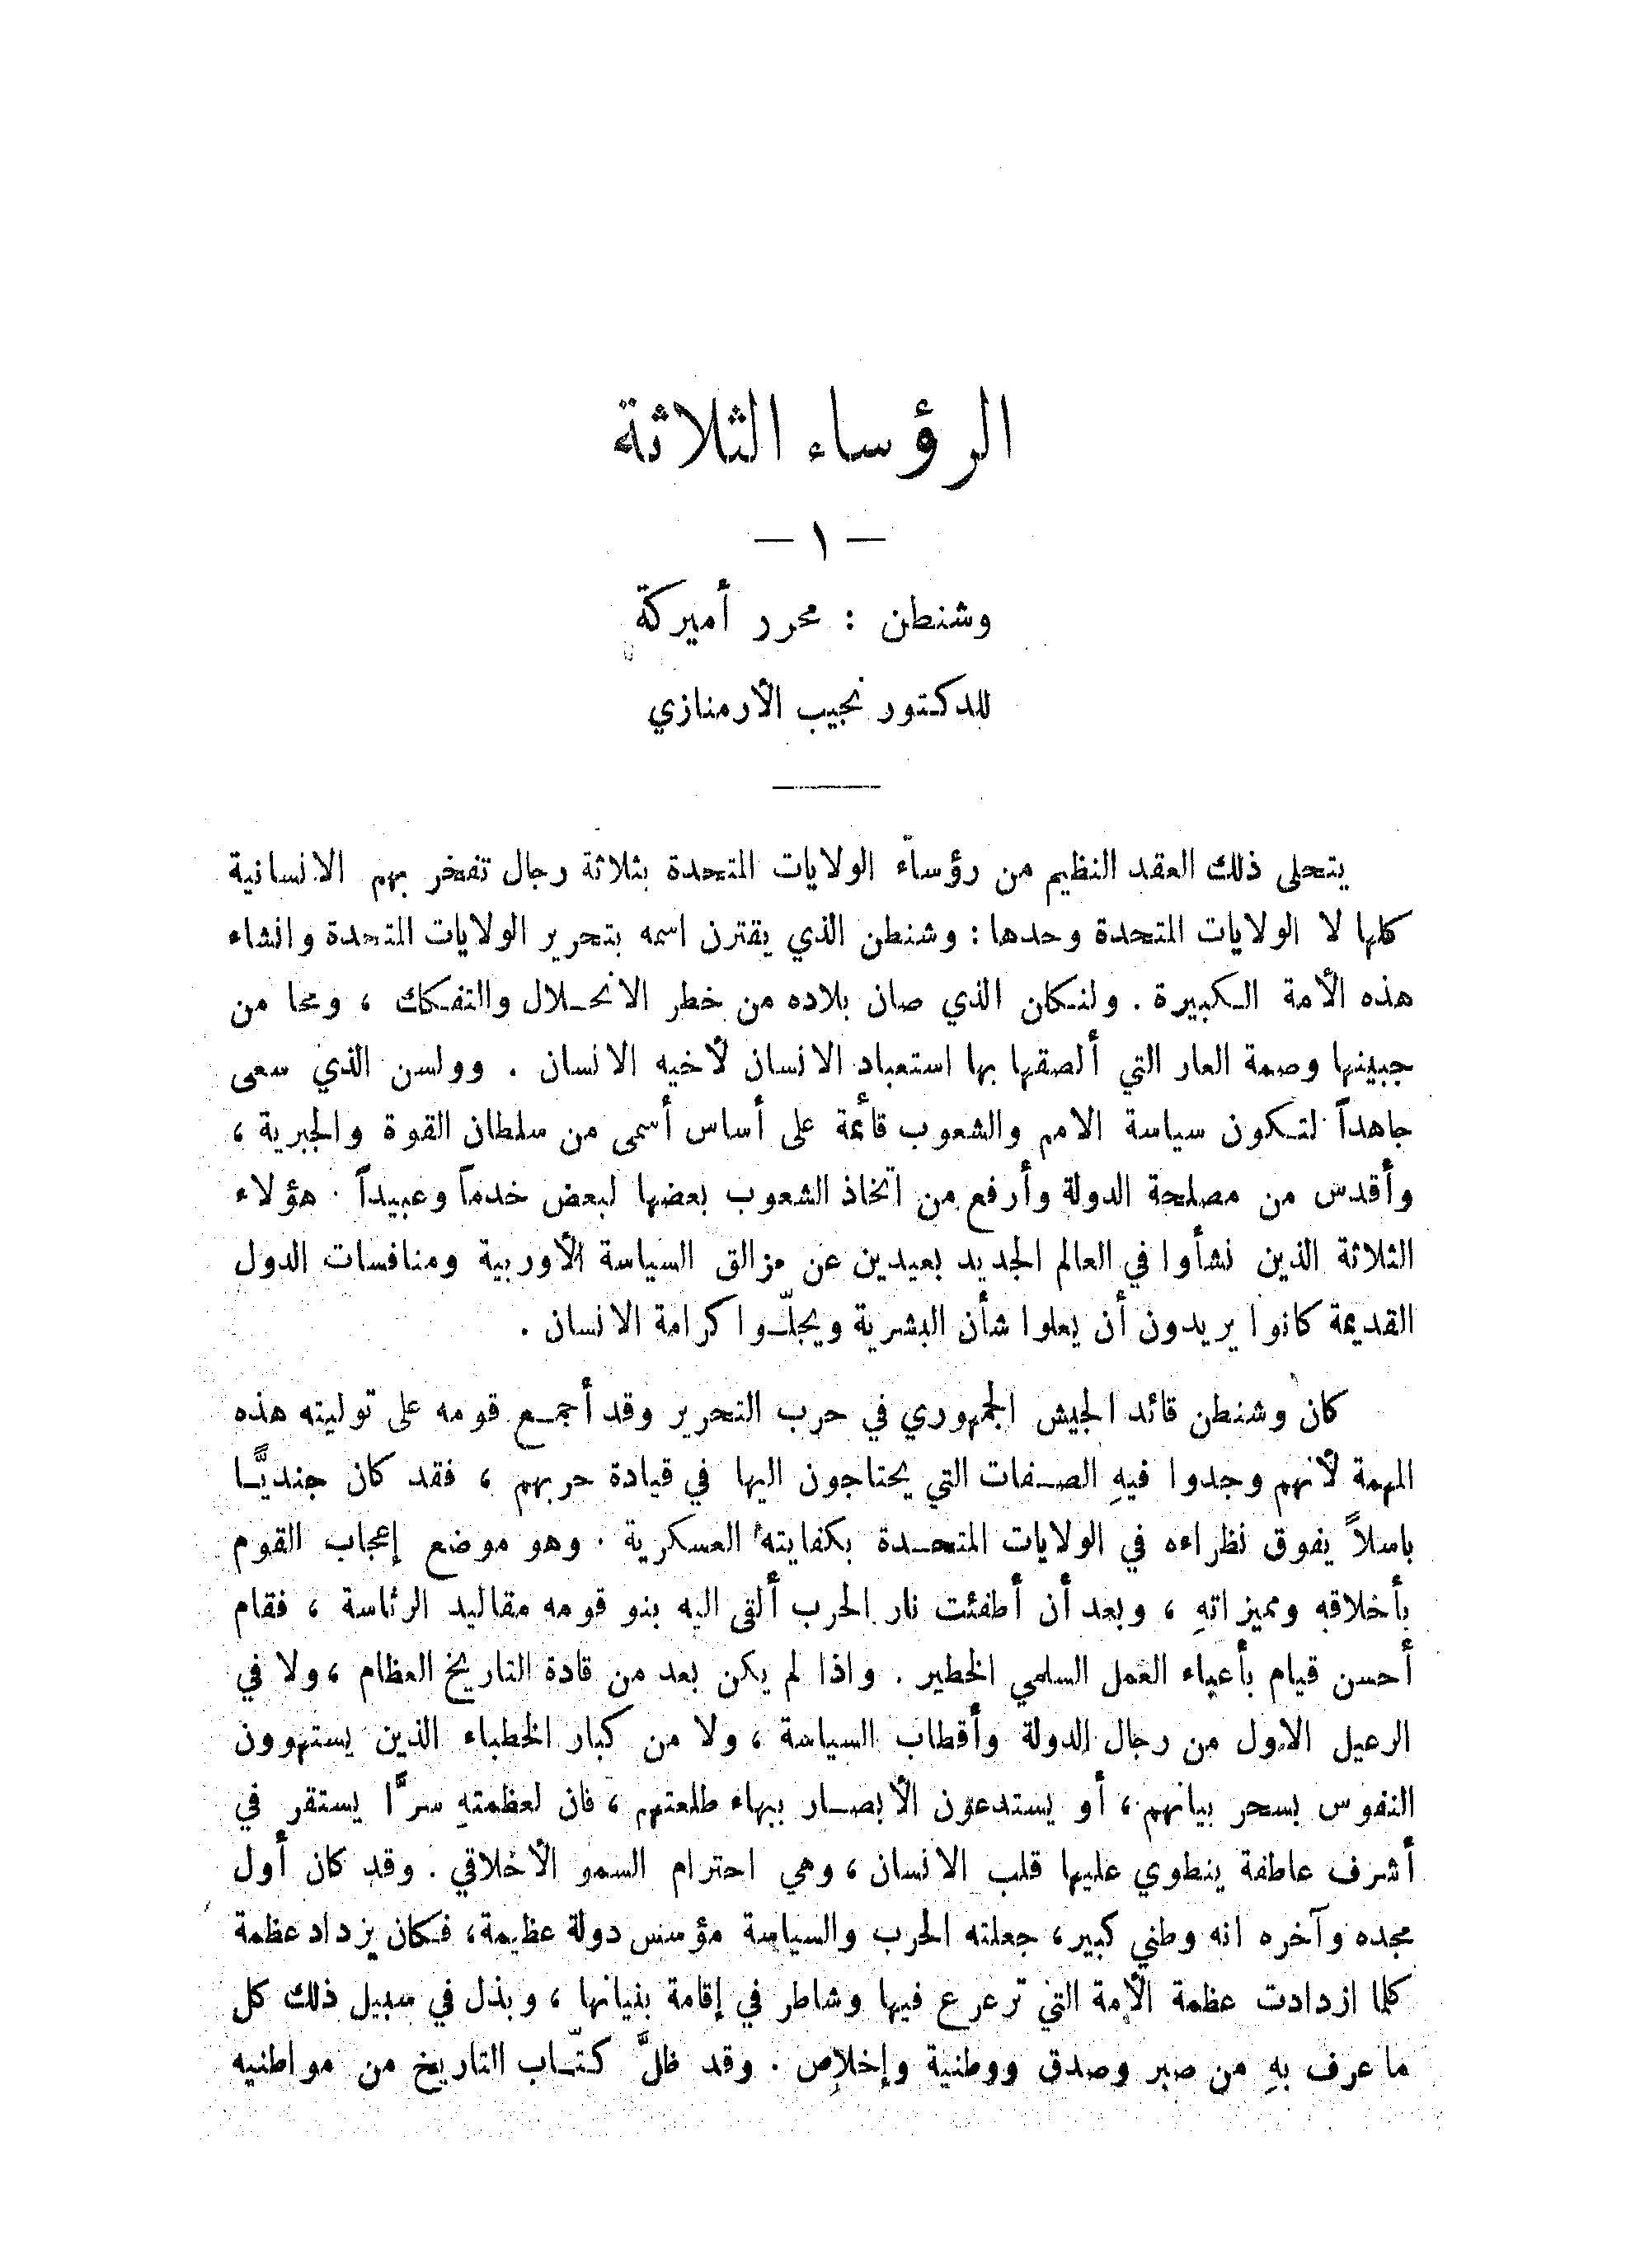 الرؤساء الثلاثة
— ١ —
وشنطن : محرر أميركة
للدكتور نجيب الأرمنازي
يتحلى ذلك العقد النظيم من رؤساء الولايات المتحدة بثلاثة رجال تفخر بهم الانسانية
كلها لا الولايات المتحدة وحدها : وشنطن الذي يقترن اسمه بتحرير الولايات المتحدة وانشاء
هذه الأمة الكبيرة . ولنكان الذي صان بلاده من خطر الانحلال والتفكك ، ومحا من
جبينها وصمة العار التي ألصقها بها استعباد الانسان لأخيه الانسان . وولسن الذي سعى
جاهداً لتكون سياسة الامم والشعوب قائمة على أساس أسمى من سلطان القوة والجبرية ،
وأقدس من مصلحة الدولة وأرفع من اتخاذ الشعوب بعضها لبعض خدماً وعبيداً . هؤلاء
الثلاثة الذين نشأوا في العالم الجديد بعيدين عن مزالق السياسة الأوربية ومنافسات الدول
القديمة كانوا يريدون أن يعلوا شأن البشرية ويجلّوا كرامة الانسان .
كان وشنطن قائد الجيش الجمهوري في حرب التحرير وقد أجمع قومه على توليته هذه
المهمة لأنهم وجدوا فيهِ الصفات التي يحتاجون اليها في قيادة حربهم ، فقد كان جنديًّا
باسلاً يفوق نظراءه في الولايات المتحدة بكفايتهُ العسكرية . وهو موضع إعجاب القوم
بأخلاقه ومميزاتهِ ، وبعد أن أطفئت نار الحرب ألقى اليه بنو قومه مقاليد الرئاسة ، فقام
أحسن قيام بأعباء العمل السلمي الخطير . واذا لم يكن بعد من قادة التاريخ العظام ، ولا في
الرعيل الاول من رجال الدولة وأقطاب السياسة ، ولا من كبار الخطباء الذين يستهوون
النفوس بسحر بيانهم ، أو يستدعون الأبصار ببهاء طلعتهم ، فان لعظمتهِ سرًّا يستقر في
أشرف عاطفة ينطوي عليها قلب الانسان ، وهي احترام السمو الأخلاقي . وقد كان أول
مجده وآخره انه وطني كبير ، جعلته الحرب والسياسة مؤسس دولة عظيمة ، فكان يزداد عظمة
كلما ازدادت عظمة الأمة التي ترعرع فيها وشاطر في إقامة بنيانها ، وبذل في سبيل ذلك كل
ما عرف بهِ من صبر وصدق ووطنية وإخلاص . وقد ظلَّ كتّاب التاريخ من مواطنيه